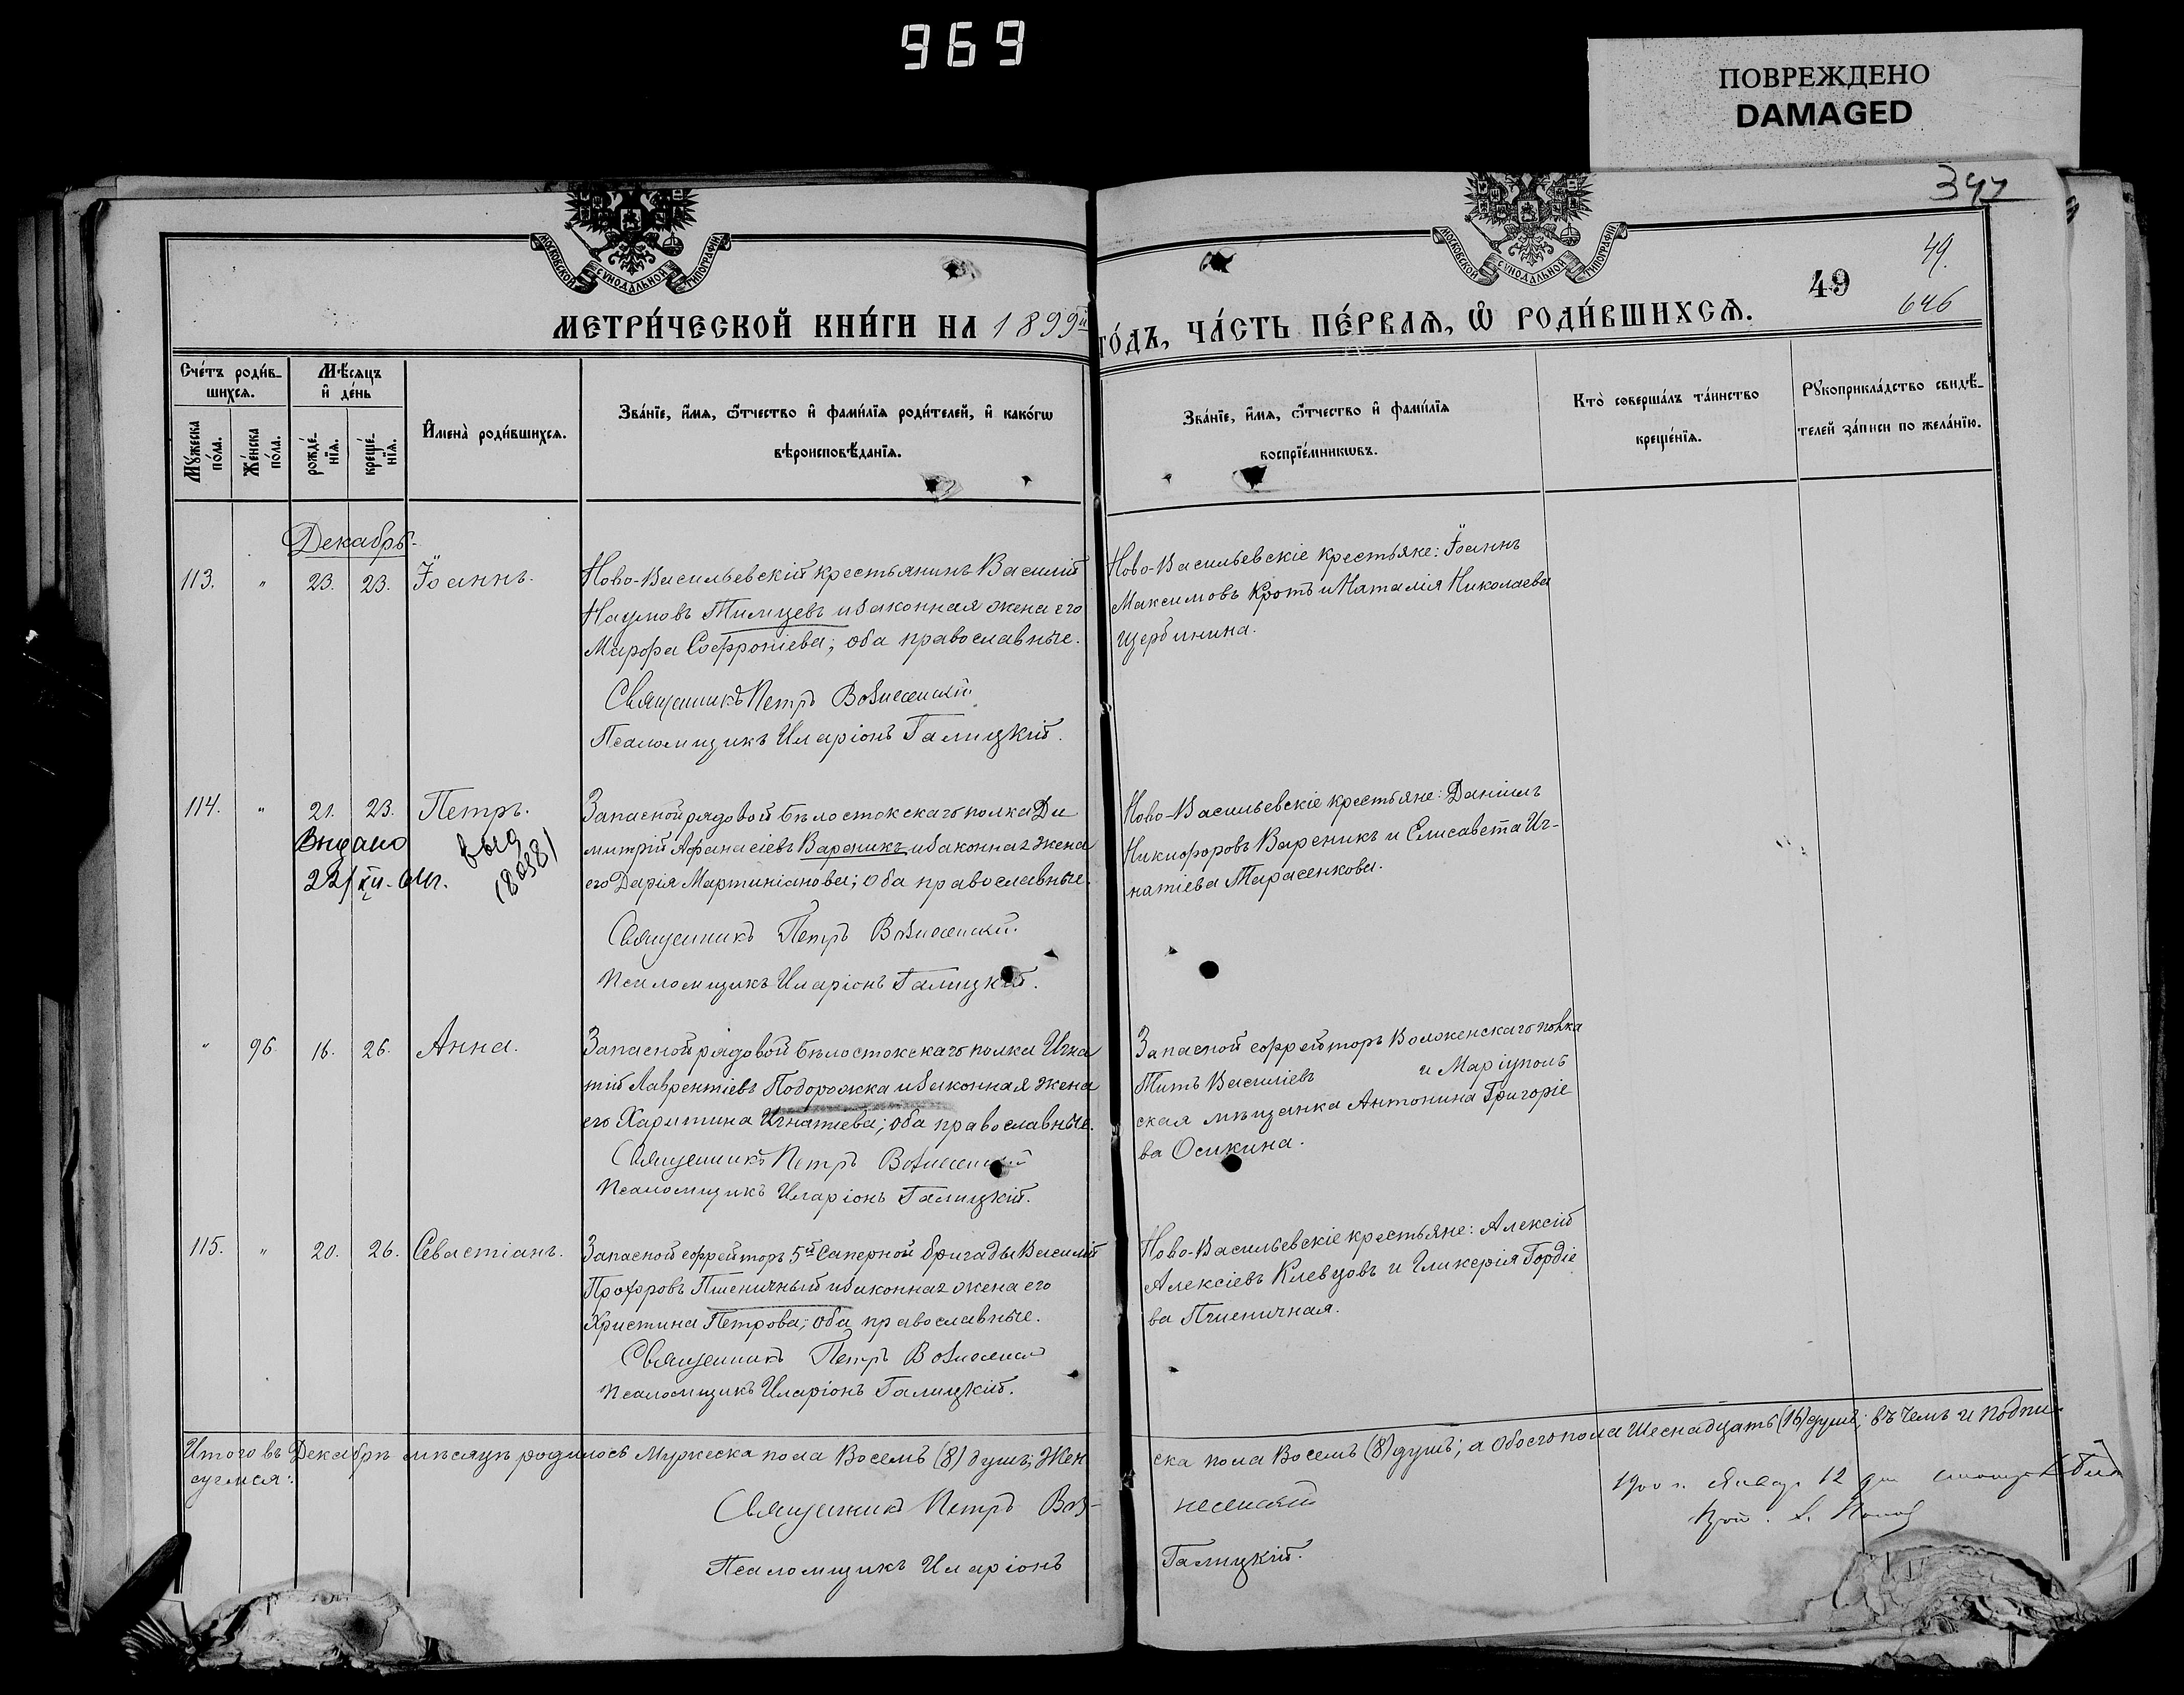 969
ПОВРЕЖДЕНО
DAMAGED
347
МОСКОВСКОЙ СУНОДАЛЬНОЙ ТИПОГРАФІИ
МОСКОВСКОЙ СУНОДАЛЬНОЙ ТИПОГРАФІИ
49.
49
646
МЕТРИ́ЧЕСКОЙ КНИ́ГИ НА 1899й
ГО́ДЪ, ЧА́СТЬ ПЕ́РВАѦ, Ѡ РОДИ́ВШИХСѦ.
Сче́тъ роди́в-
шихсѧ.
Мѣ́сѧцъ
и҆ де́нь
Мꙋ́жеска
по́ла.
Же́нска
по́ла.
рожде́-
нїѧ.
креще́-
нїѧ.
И҆мена̀ роди́вшихсѧ.
Зва́нїе, и҆́мѧ, ѻ҆́тчество и҆ фами́лїѧ роди́телей, и҆ како́гѡ
вѣроисповѣ́данїѧ.
Зва́нїе, и҆́мѧ, ѻ҆́тчество и҆ фами́лїѧ
воспрїе́мникѡвъ.
Кто̀ соверша́лъ та́инство
креще́нїѧ.
Рꙋкоприкла́дство свидѣ́-
телей за́писи по жела́нїю.
Декабрь.
113. " 23. 23. Іоаннъ.
Ново-Васильевскій крестьянинъ Василій
Наумовъ Тимцевъ и законная жена его
Марфа Софроніева; оба православные.
Священникъ Петръ Вознесенскій.
Псаломщикъ Иларіонъ Галицкій.
Ново-Васильевскіе крестьяне: Іоаннъ
Максимовъ Кротъ и Наталія Николаева
Щербинина.
114. " 21. 23. Петръ.
Выдано
22/XII-
выд
Запасной рядовой Бѣлостокскаго полка Ди
митрій Афанасіевъ Вареникъ и законная жена
его Дарія Мартиніанова; оба православные.
Священникъ Петръ Вознесенскій.
Псаломщикъ Иларіонъ Галицкій.
Ново-Васильевскіе крестьяне: Даніилъ
Никифоровъ Вареникъ и Елисавета Иг-
натіева Тарасенкова.
" 96. 16. 26. Анна.
Запасной рядовой Бѣлостокскаго полка Игна
тій Лаврентіевъ Подорожка и законная жена
его Харитина Игнатіева; оба православные.
Священникъ Петръ Вознесенскій
Псаломщикъ Иларіонъ Галицкій.
Запасной ефрейторъ Воложенскаго полка
Титъ Василіевъ и Маріуполь
ская мѣщанка Антонина Григоріе
ва Осикина.
115. " 20. 26. Севастіанъ.
Запасной ефрейторъ 5й Саперной бригады Василій
Прохоровъ Пшеничный и законная жена его
Христина Петрова; оба православные.
Священникъ Петръ Вознесенскій
Псаломщикъ Иларіонъ Галицкій.
Ново-Васильевскіе крестьяне: Алексій
Алексіевъ Клевцовъ и Гликерія Гордіе
ва Пшеничная.
Итого въ Декабрѣ мѣсяцѣ родилось Мужеска пола Восемь (8) душъ; Жен
ска пола Восемь (8) душъ; а обоего пола Шеснадцать (16) душъ; въ чемъ и подпи
суемся:
Священникъ Петръ Воз-
несенскій
Псаломщикъ Иларіонъ
Галицкій.
1900 г. Январ 12 дня